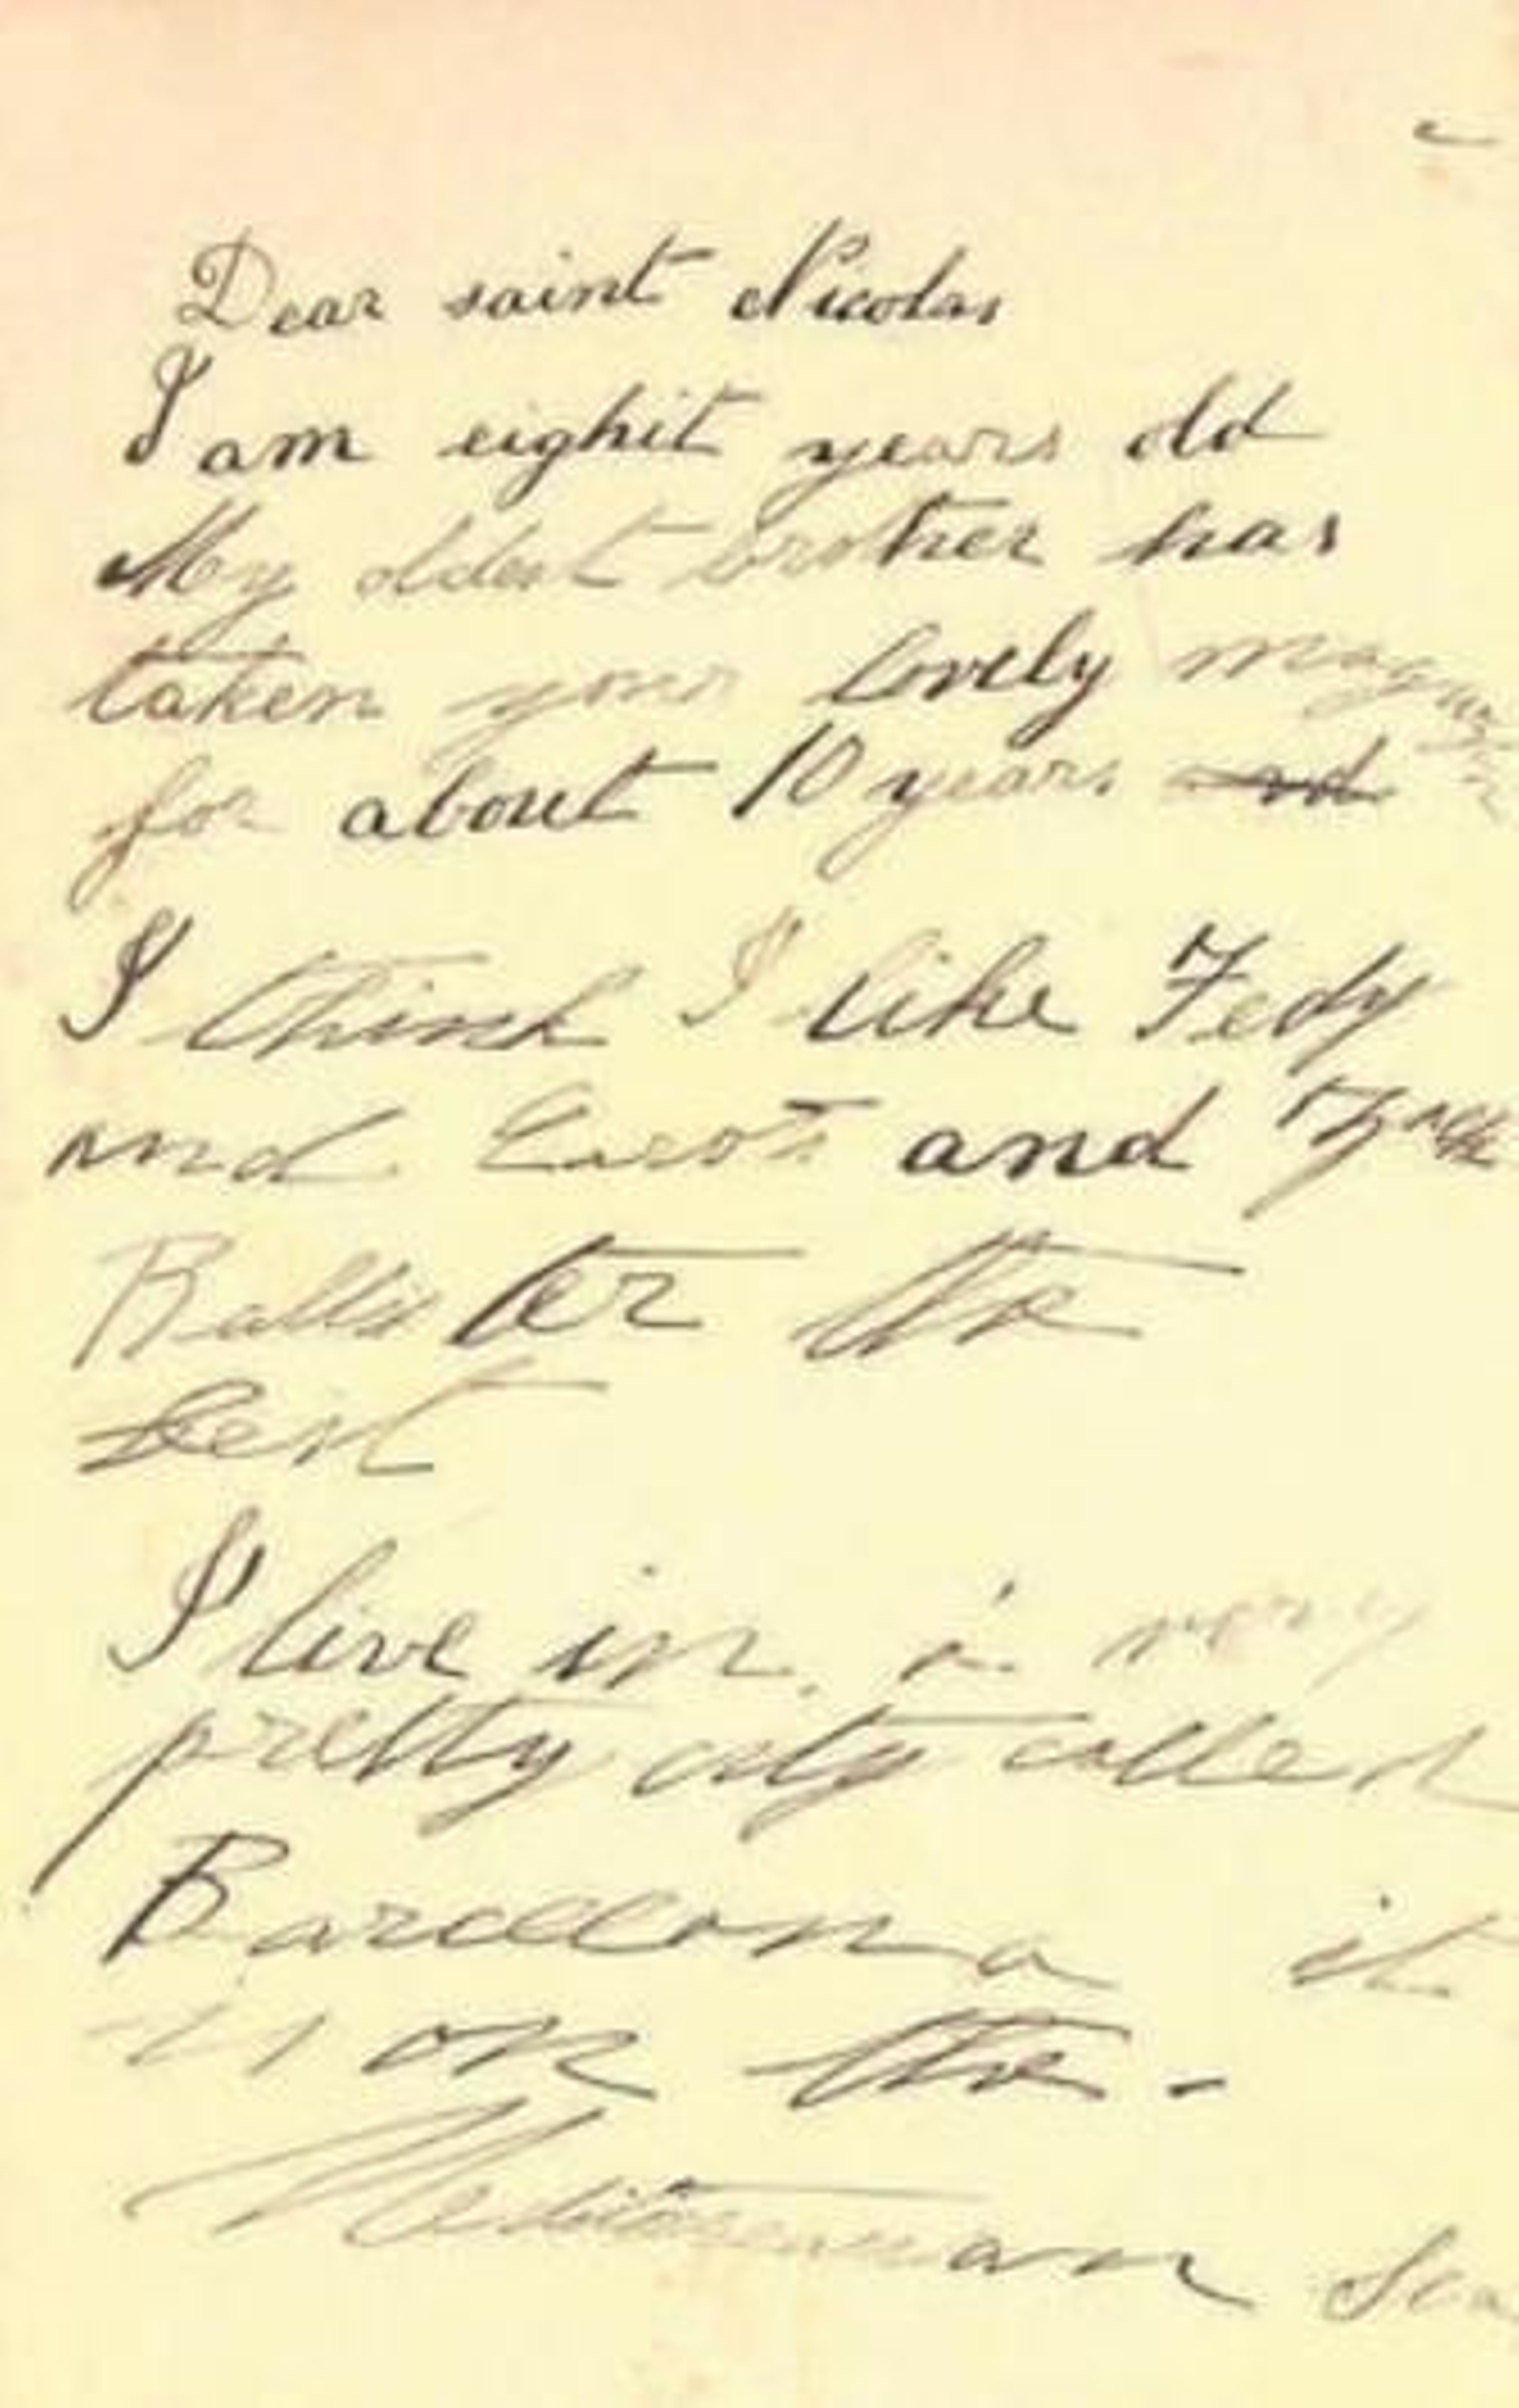 Dear saint Nicolas
I am eighit years old
My oldest brother has
taken your lovely magazine
for about 10 years
I think I like Tedy
and Carots and
Ballister the
best
I live in a very
pretty city called
Barcelona it
is on the -
Sea